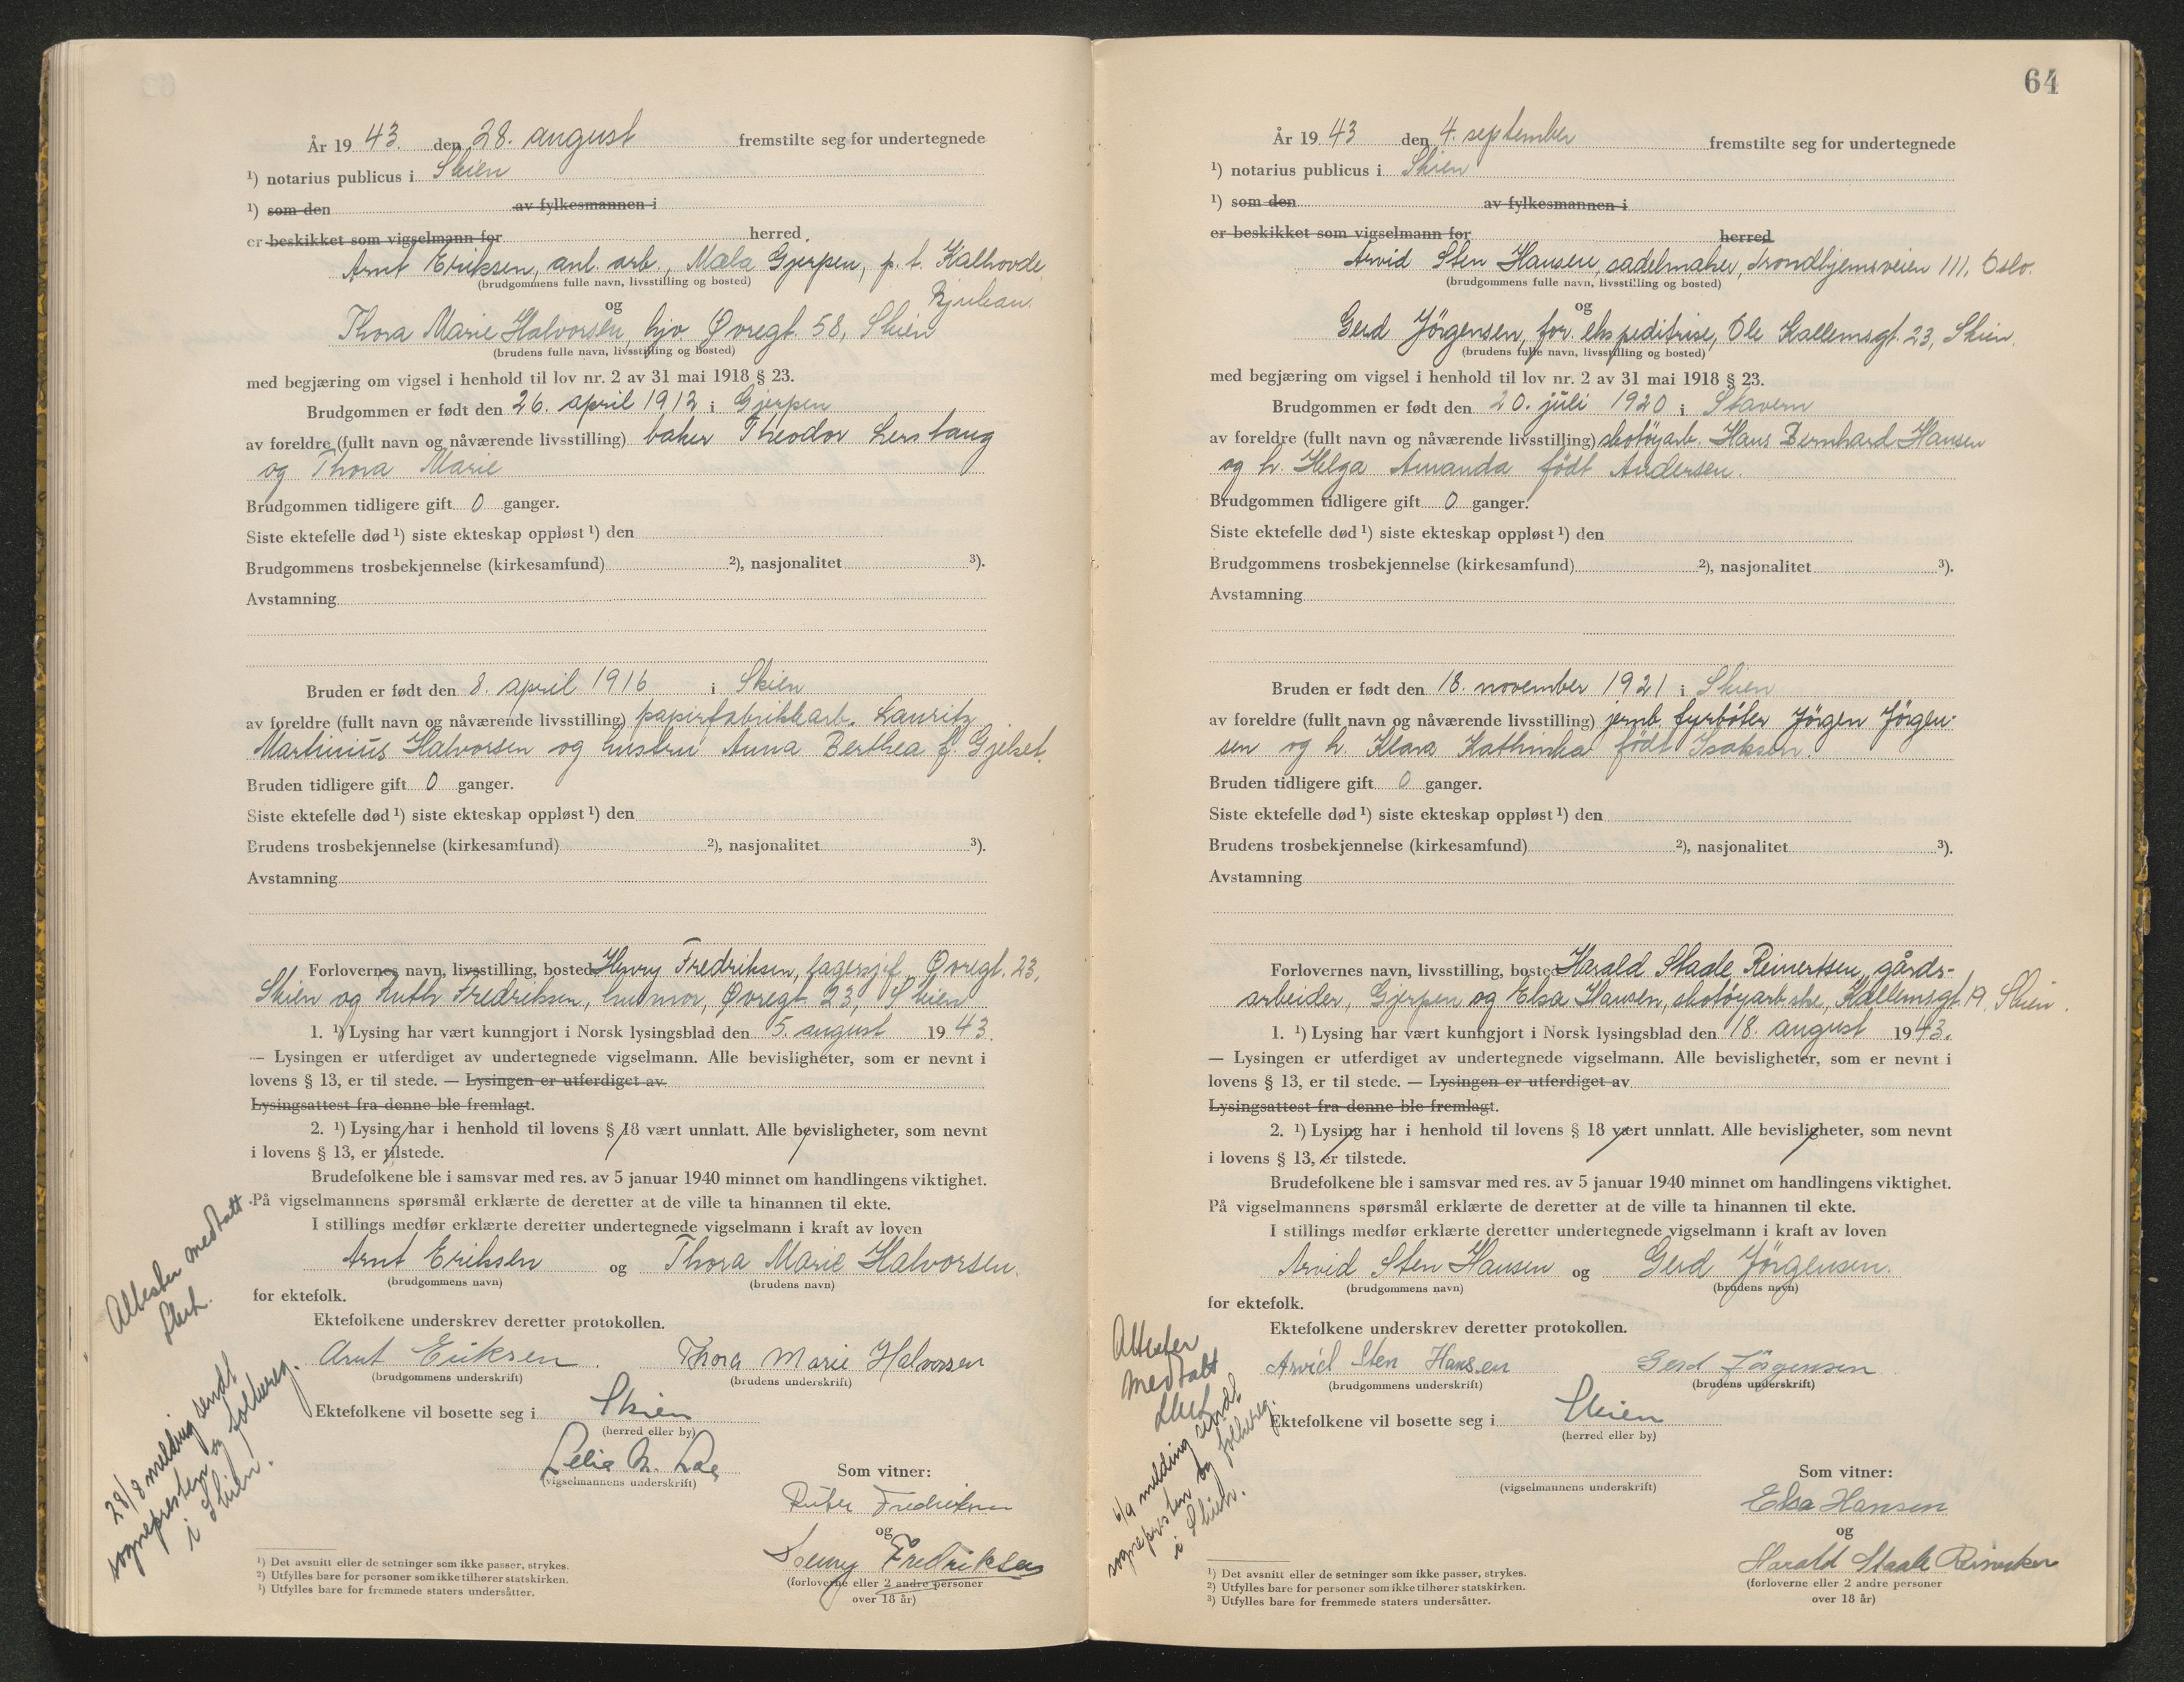 År 19 43. den 28. august fremstilte seg for undertegnede
¹) notarius publicus i Skien
¹) som den av fylkesmannen i
er beskikket som vigselmann for herred.
Arnt Eriksen, anl. arb., Mæla Gjerpen, p. t. Kalhovde,
(brudgommens fulle navn, livsstilling og bosted)
Rjukan.
og
Thora Marie Halvorsen, hjv. Øvregt 58, Skien
(brudens fulle navn, livsstilling og bosted)
med begjæring om vigsel i henhold til lov nr. 2 av 31 mai 1918 § 23.
Brudgommen er født den 26. april 1912 i Gjerpen
av foreldre (fullt navn og nåværende livsstilling) baker Theodor Lerstang
og Thora Marie
Brudgommen tidligere gift 0 ganger.
Siste ektefelle død ¹) siste ekteskap oppløst ¹) den
Brudgommens trosbekjennelse (kirkesamfund) ²), nasjonalitet ³).
Avstamning
Bruden er født den 8. april 1916 i Skien
av foreldre (fullt navn og nåværende livsstilling) papirfabrikkarb. Lauritz
Martinius Halvorsen og hustru Anna Berthea f. Gjelset.
Bruden tidligere gift 0 ganger.
Siste ektefelle død ¹) siste ekteskap oppløst ¹) den
Brudens trosbekjennelse (kirkesamfund) ²), nasjonalitet ³).
Avstamning
Forlovernes navn, livsstilling, bosted Henry Fredriksen, lagersjef, Øvregt. 23,
Skien og Ruth Fredriksen, husmor, Øvregt 23, Skien
1. ¹) Lysing har vært kunngjort i Norsk lysingsblad den 5. august 19 43.
— Lysingen er utferdiget av undertegnede vigselmann. Alle bevisligheter, som er nevnt i
lovens § 13, er til stede. — Lysingen er utferdiget av
Lysingsattest fra denne ble fremlagt.
2. ¹) Lysing har i henhold til lovens § 18 vært unnlatt. Alle bevisligheter, som nevnt
i lovens § 13, er tilstede.
Brudefolkene ble i samsvar med res. av 5 januar 1940 minnet om handlingens viktighet.
På vigselmannens spørsmål erklærte de deretter at de ville ta hinannen til ekte.
I stillings medfør erklærte deretter undertegnede vigselmann i kraft av loven
Arnt Eriksen og Thora Marie Halvorsen.
(brudgommens navn) (brudens navn)
for ektefolk.
Ektefolkene underskrev deretter protokollen.
Arnt Eriksen. Thora Marie Halvorsen
(brudgommens underskrift) (brudens underskrift)
Ektefolkene vil bosette seg i Skien
(herred eller by)
(vigselmannens underskrift)
Som vitner:
Fredriksen
og
Henny Fredriksen
(forloverne eller 2 andre personer
over 18 år)
Attester medtatt
28/8 melding sendt
sognepresten og folkereg.
i Skien.
¹) Det avsnitt eller de setninger som ikke passer, strykes.
²) Utfylles bare for personer som ikke tilhører statskirken.
³) Utfylles bare for fremmede staters undersåtter.
64
År 19 43 den 4. september fremstilte seg for undertegnede
¹) notarius publicus i Skien
¹) som den av fylkesmannen i
er beskikket som vigselmann for herred
Arvid Sten Hansen, sadelmaker, Trondhjemsveien 111, Oslo.
(brudgommens fulle navn, livsstilling og bosted)
og
Gerd Jörgensen, for. ekspeditrise, Ole Kallemsgt. 23, Skien.
(brudens fulle navn, livsstilling og bosted)
med begjæring om vigsel i henhold til lov nr. 2 av 31 mai 1918 § 23.
Brudgommen er født den 20. juli 1920 i Stavern
av foreldre (fullt navn og nåværende livsstilling) skotöyarb. Hans Bernhard Hansen
og h. Helga Amanda födt Andersen.
Brudgommen tidligere gift 0 ganger.
Siste ektefelle død ¹) siste ekteskap oppløst ¹) den
Brudgommens trosbekjennelse (kirkesamfund) ²), nasjonalitet ³).
Avstamning
Bruden er født den 18. november 1921 i Skien
av foreldre (fullt navn og nåværende livsstilling) jernb. fyrböter Jörgen Jörgen-
sen og h. Klara Kathinka födt Isaksen.
Bruden tidligere gift 0 ganger.
Siste ektefelle død ¹) siste ekteskap oppløst ¹) den
Brudens trosbekjennelse (kirkesamfund) ²), nasjonalitet ³).
Avstamning
Forlovernes navn, livsstilling, bosted Harald Staale Reinertsen, gårds-
arbeider, Gjerpen og Elsa Hansen, skotöyarbske, Kallemsgt. 19, Skien.
1. ¹) Lysing har vært kunngjort i Norsk lysingsblad den 18. august 19 43.
— Lysingen er utferdiget av undertegnede vigselmann. Alle bevisligheter, som er nevnt i
lovens § 13, er til stede. — Lysingen er utferdiget av
Lysingsattest fra denne ble fremlagt.
2. ¹) Lysing har i henhold til lovens § 18 vært unnlatt. Alle bevisligheter, som nevnt
i lovens § 13, er tilstede.
Brudefolkene ble i samsvar med res. av 5 januar 1940 minnet om handlingens viktighet.
På vigselmannens spørsmål erklærte de deretter at de ville ta hinannen til ekte.
I stillings medfør erklærte deretter undertegnede vigselmann i kraft av loven
Arvid Sten Hansen og Gerd Jörgensen.
(brudgommens navn) (brudens navn)
for ektefolk.
Ektefolkene underskrev deretter protokollen.
Arvid Sten Hansen Gerd Jörgensen
(brudgommens underskrift) (brudens underskrift)
Ektefolkene vil bosette seg i Skien
(herred eller by)
(vigselmannens underskrift)
Som vitner:
Elsa Hansen
og
Harald Staale Reinertsen
(forloverne eller 2 andre personer
over 18 år)
Attester
medtatt
6/9 melding sendt
sognepresten og folkereg.
i Skien.
¹) Det avsnitt eller de setninger som ikke passer, strykes.
²) Utfylles bare for personer som ikke tilhører statskirken.
³) Utfylles bare for fremmede staters undersåtter.